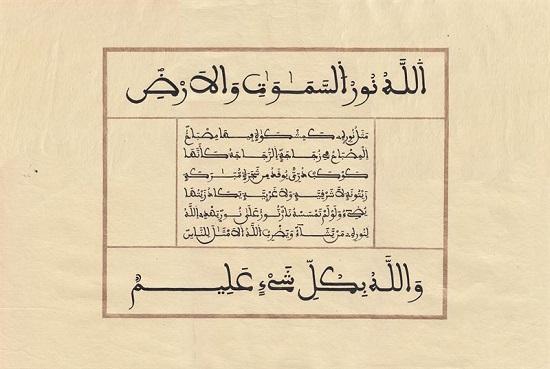 اللَّهُ نُورُ السَّمَٰوَٰتِ وَالْأَرْضِ
مَثَلُ نُورِهِ كَمِشْكَوٰةٍ فِيهَا مِصْبَاحٌ
الْمِصْبَاحُ فِي زُجَاجَةٍ الزُّجَاجَةُ كَأَنَّهَا
كَوْكَبٌ دُرِّيٌّ يُوقَدُ مِن شَجَرَةٍ مُّبَٰرَكَةٍ
زَيْتُونَةٍ لَا شَرْقِيَّةٍ وَلَا غَرْبِيَّةٍ يَكَادُ زَيْتُهَا
يُضِيءُ وَلَوْ لَمْ تَمْسَسْهُ نَارٌ نُّورٌ عَلَىٰ نُورٍ يَهْدِي اللَّهُ
لِنُورِهِ مَن يَشَاءُ وَيَضْرِبُ اللَّهُ الْأَمْثَالَ لِلنَّاسِ
وَاللَّهُ بِكُلِّ شَيْءٍ عَلِيمٌ